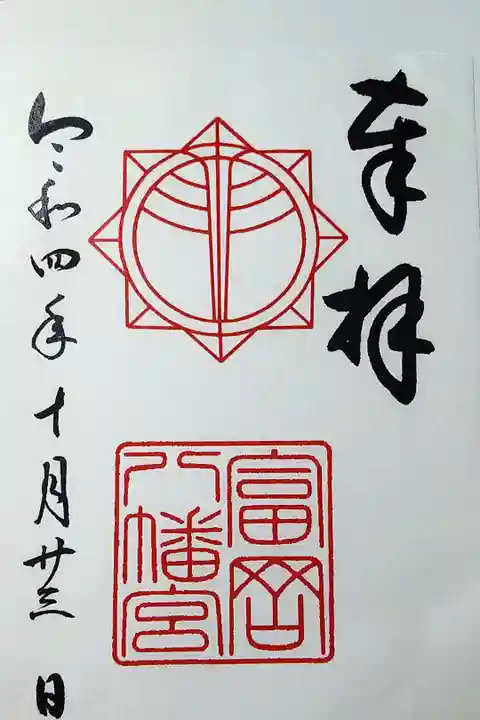 奉拝
富岡
八幡宮
令和四年十月廿三日